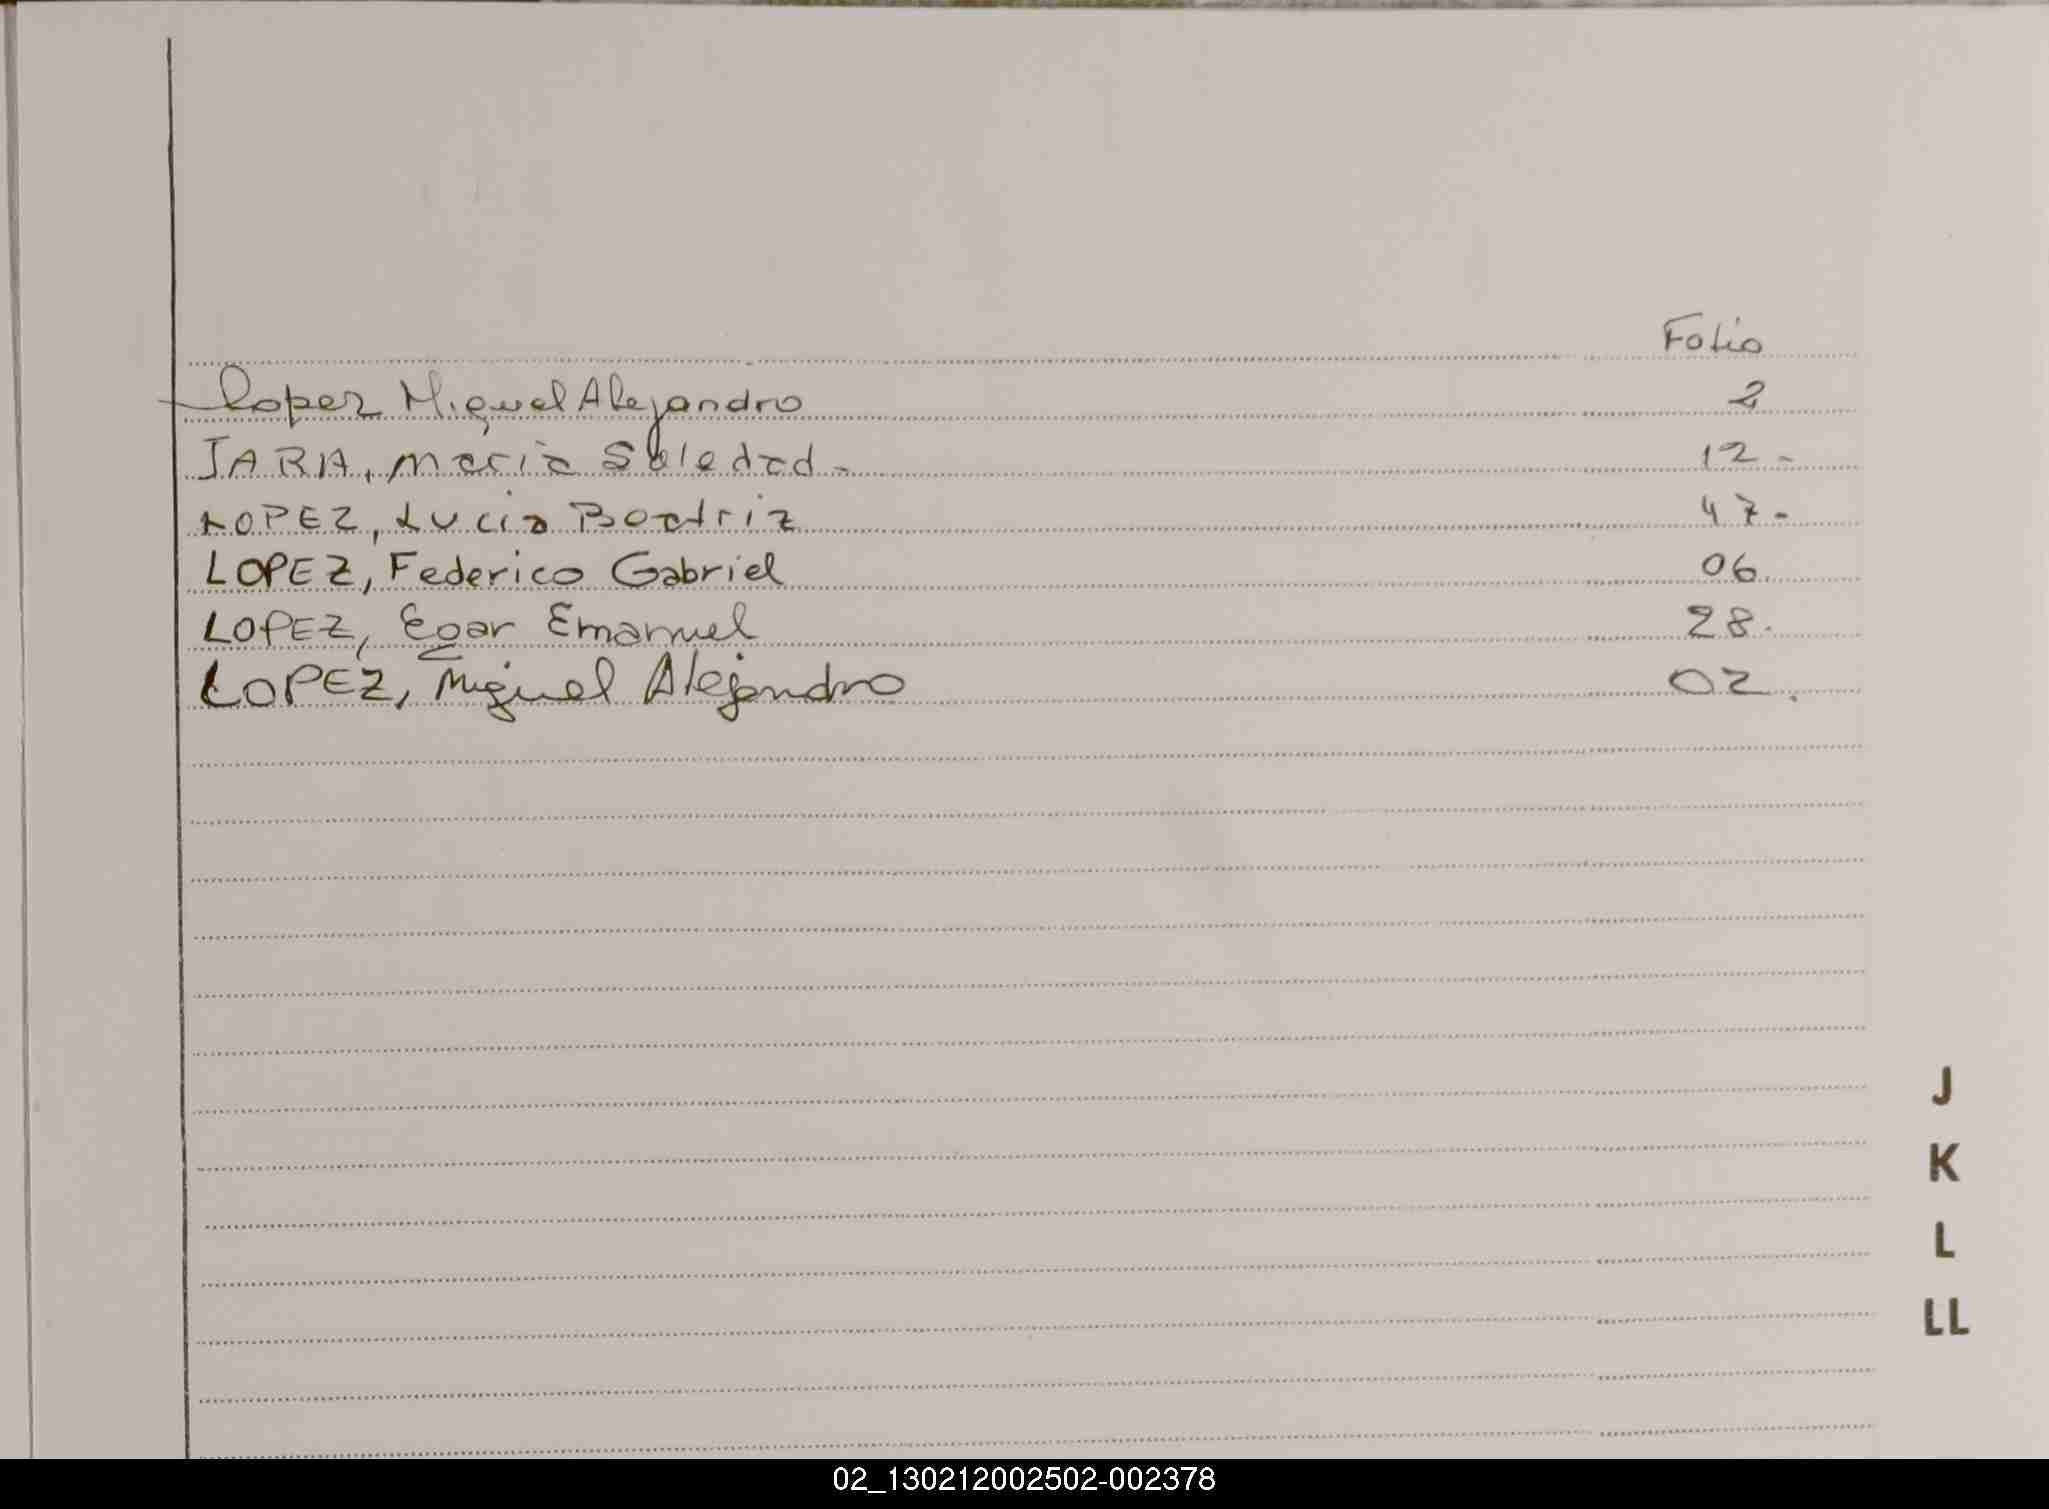 Folio
Lopez Miguel Alejandro 2
JARA, María Soledad - 12 -
LOPEZ, Lucia Beatriz 47 -
LOPEZ, Federico Gabriel 06
LOPEZ, Egar Emanuel 28.
LOPEZ, Miguel Alejandro 02.
J
K
L
LL
02_130212002502-002378